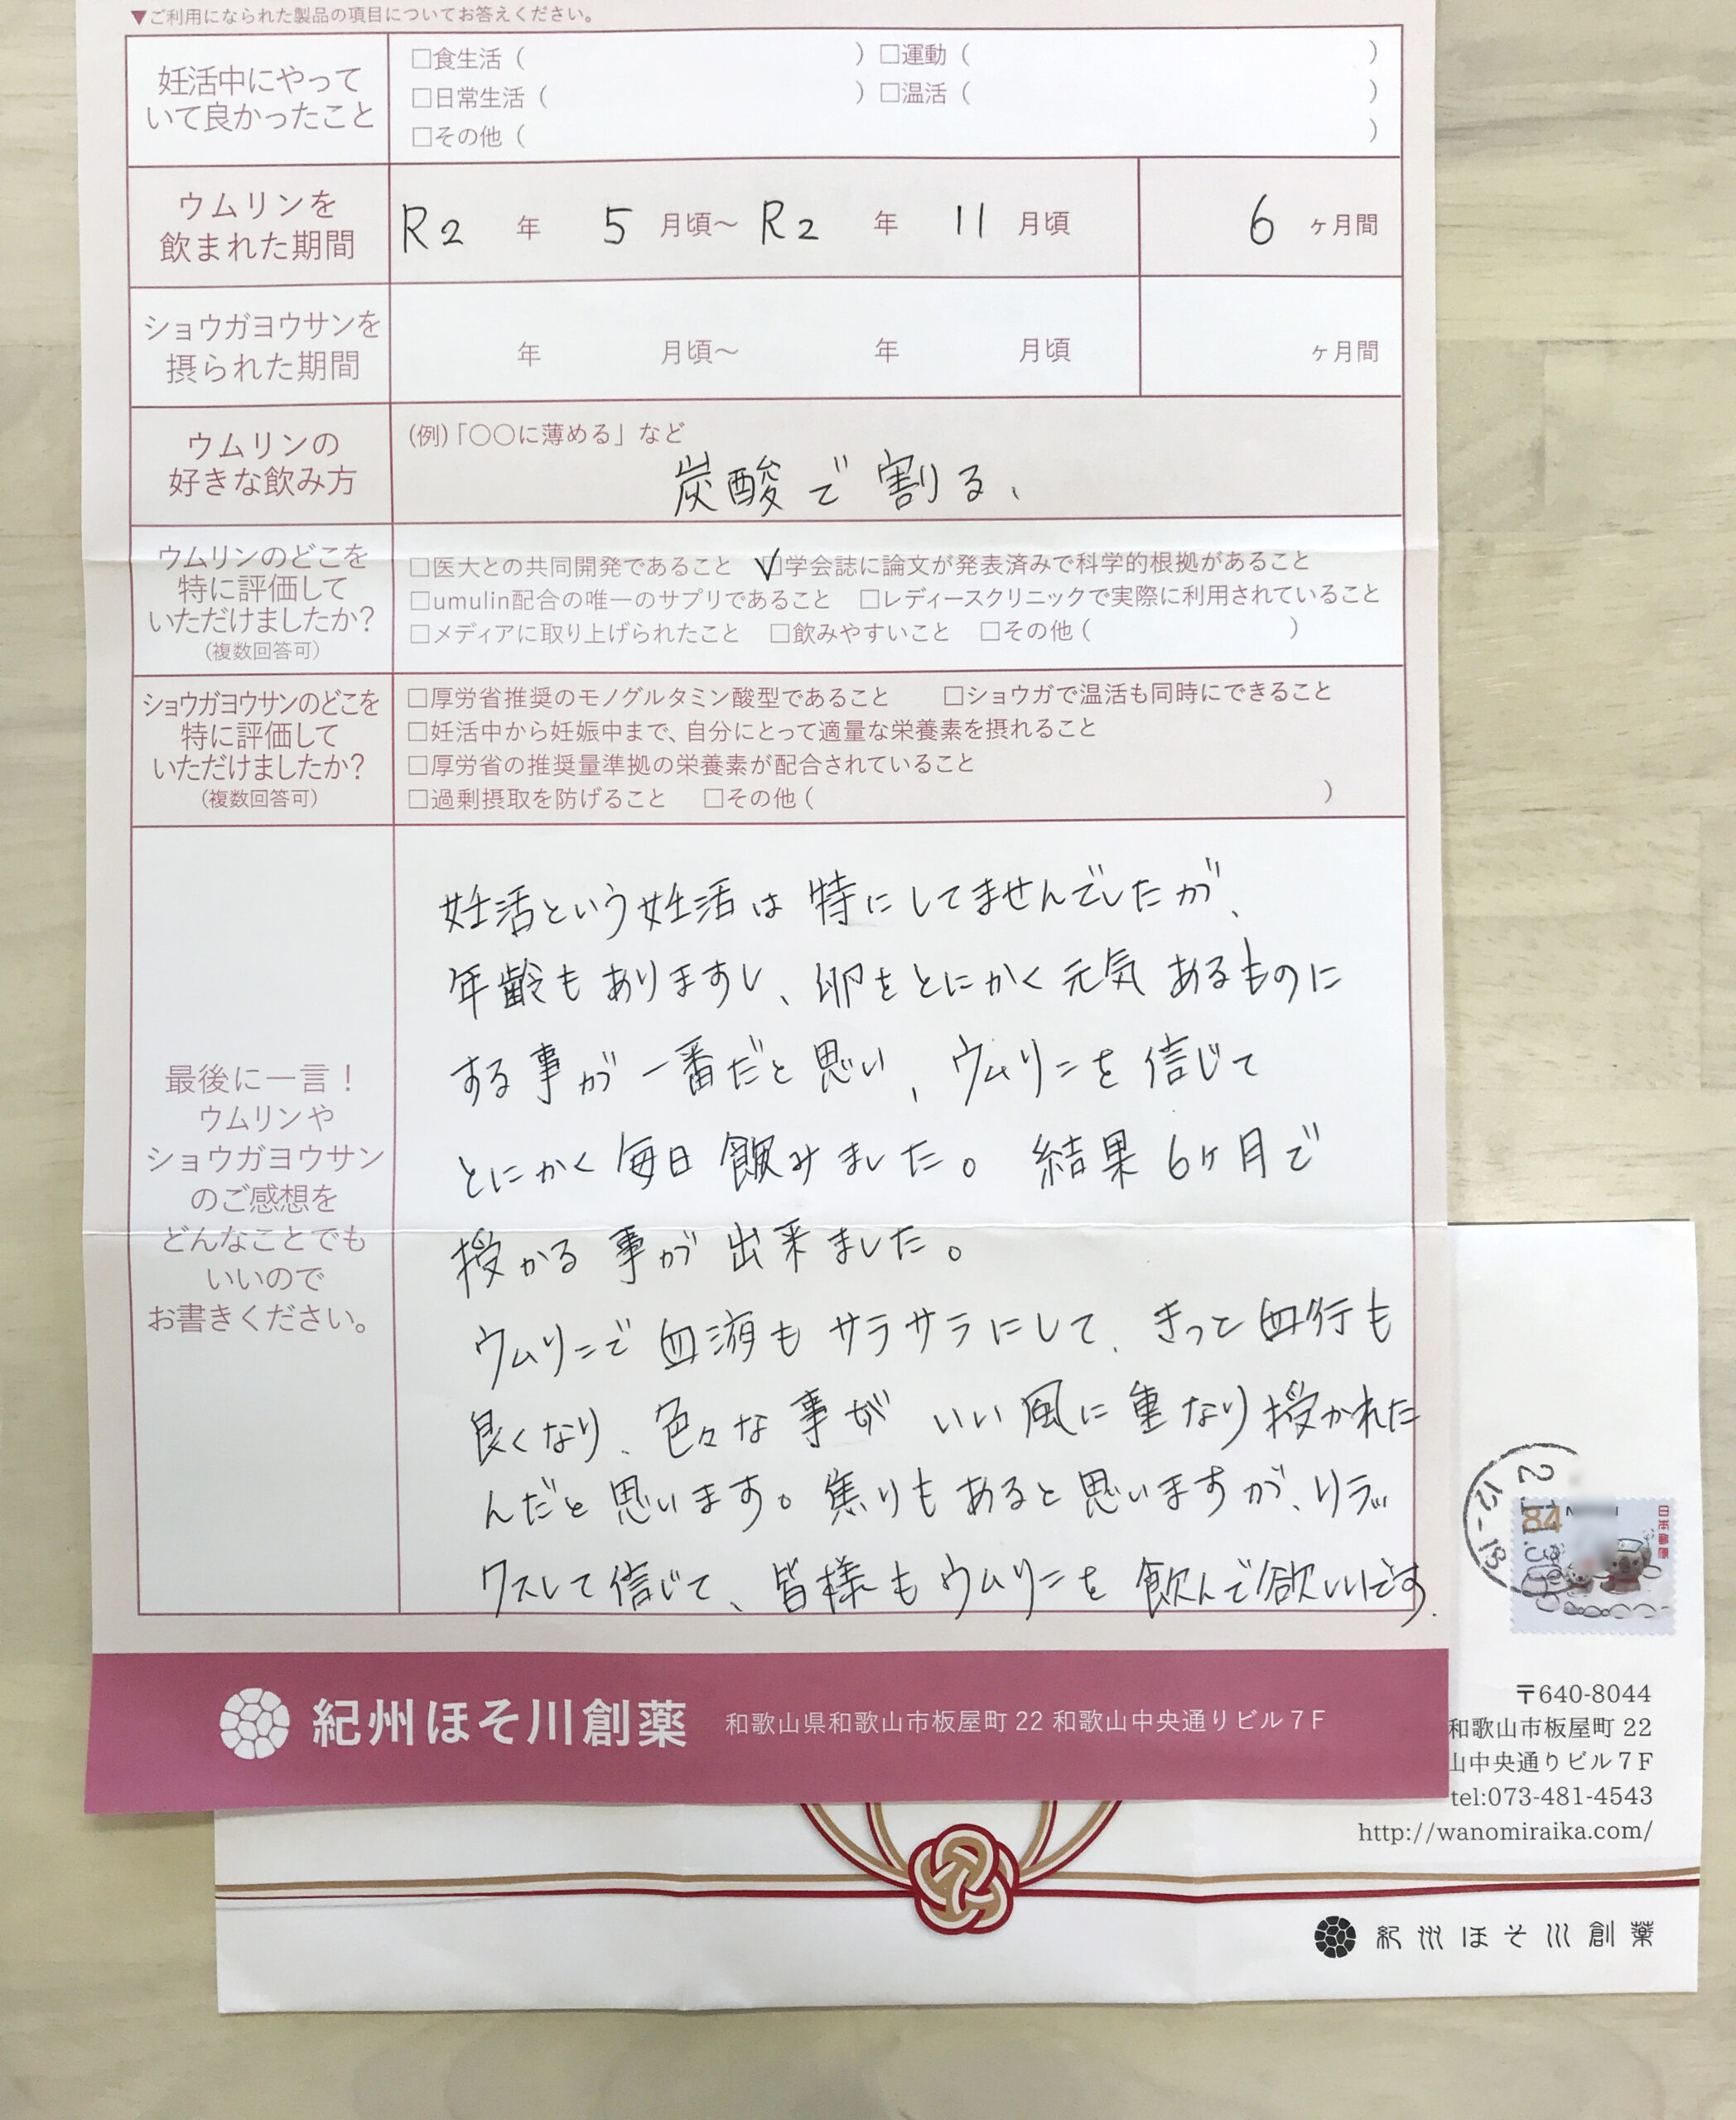 ▼ご利用になられた製品の項目についてお答えください。
妊活中にやって
いて良かったこと
□食生活（　　　）□運動（　　　）
□日常生活（　　　）□温活（　　　）
□その他（　　　）
ウムリンを
飲まれた期間
R2 年 5 月頃〜 R2 年 11 月頃
6 ヶ月間
ショウガヨウサンを
摂られた期間
年 月頃〜 年 月頃
ヶ月間
ウムリンの
好きな飲み方
(例)「〇〇に薄める」など
炭酸で割る、
ウムリンのどこを
特に評価して
いただけましたか?
(複数回答可)
□医大との共同開発であること ☑学会誌に論文が発表済みで科学的根拠があること
□umulin配合の唯一のサプリであること □レディースクリニックで実際に利用されていること
□メディアに取り上げられたこと □飲みやすいこと □その他（　　　）
ショウガヨウサンのどこを
特に評価して
いただけましたか?
(複数回答可)
□厚労省推奨のモノグルタミン酸型であること □ショウガで温活も同時にできること
□妊活中から妊娠中まで、自分にとって適量な栄養素を摂れること
□厚労省の推奨量準拠の栄養素が配合されていること
□過剰摂取を防げること □その他（　　　）
最後に一言！
ウムリンや
ショウガヨウサン
のご感想を
どんなことでも
いいので
お書きください。
妊活という妊活は特にしてませんでしたが、
年齢もありますし、卵をとにかく元気あるものに
する事が一番だと思い、ウムリンを信じて
とにかく毎日飲みました。結果6ヶ月で
授かる事が出来ました。
ウムリンで血液もサラサラにして、きっと血行も
良くなり、色々な事がいい風に重なり授かれた
んだと思います。焦りもあると思いますが、リラッ
クスして信じて、皆様もウムリンを飲んで欲しいです。
紀州ほそ川創薬 和歌山県和歌山市板屋町 22 和歌山中央通りビル７F
84
日本郵便
12-18
〒640-8044
和歌山市板屋町 22
山中央通りビル７F
tel:073-481-4543
http://wanomiraika.com/
紀州ほそ川創薬